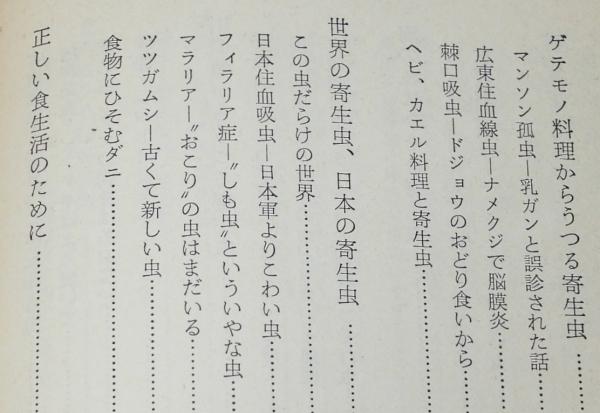 ゲテモノ料理からうつる寄生虫………
マンソン孤虫―乳ガンと誤診された話…
広東住血線虫―ナメクジで脳膜炎………
棘口吸虫―ドジョウのおどり食いから…
ヘビ、カエル料理と寄生虫………………
世界の寄生虫、日本の寄生虫 …………
この虫だらけの世界………………………
日本住血吸虫―日本軍よりこわい虫……
フィラリア症―〝しも虫〟といういやな虫…
マラリアー〝おこり〟の虫はまだいる……
ツツガムシ―古くて新しい虫……………
食物にひそむダニ…………………………
正しい食生活のために……………………